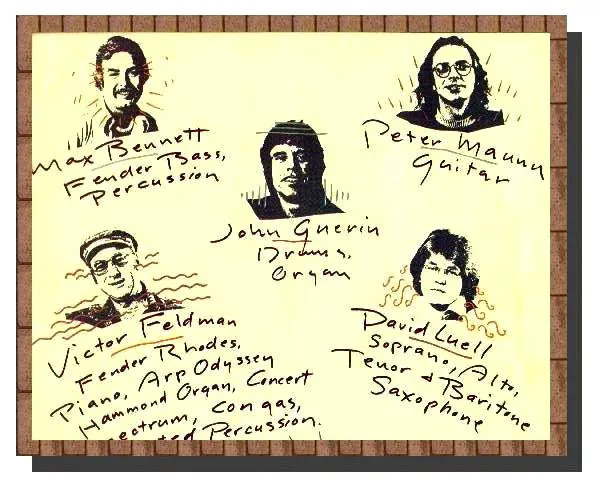 Max Bennett
Fender Bass,
Percussion
Peter Maunu
Guitar
John Guerin
Drums,
Organ
Victor Feldman
Fender Rhodes,
Piano, Arp Odyssey
Hammond Organ, Concert
Congas,
Percussion.
David Luell
Soprano, Alto,
Tenor & Baritone
Saxophone